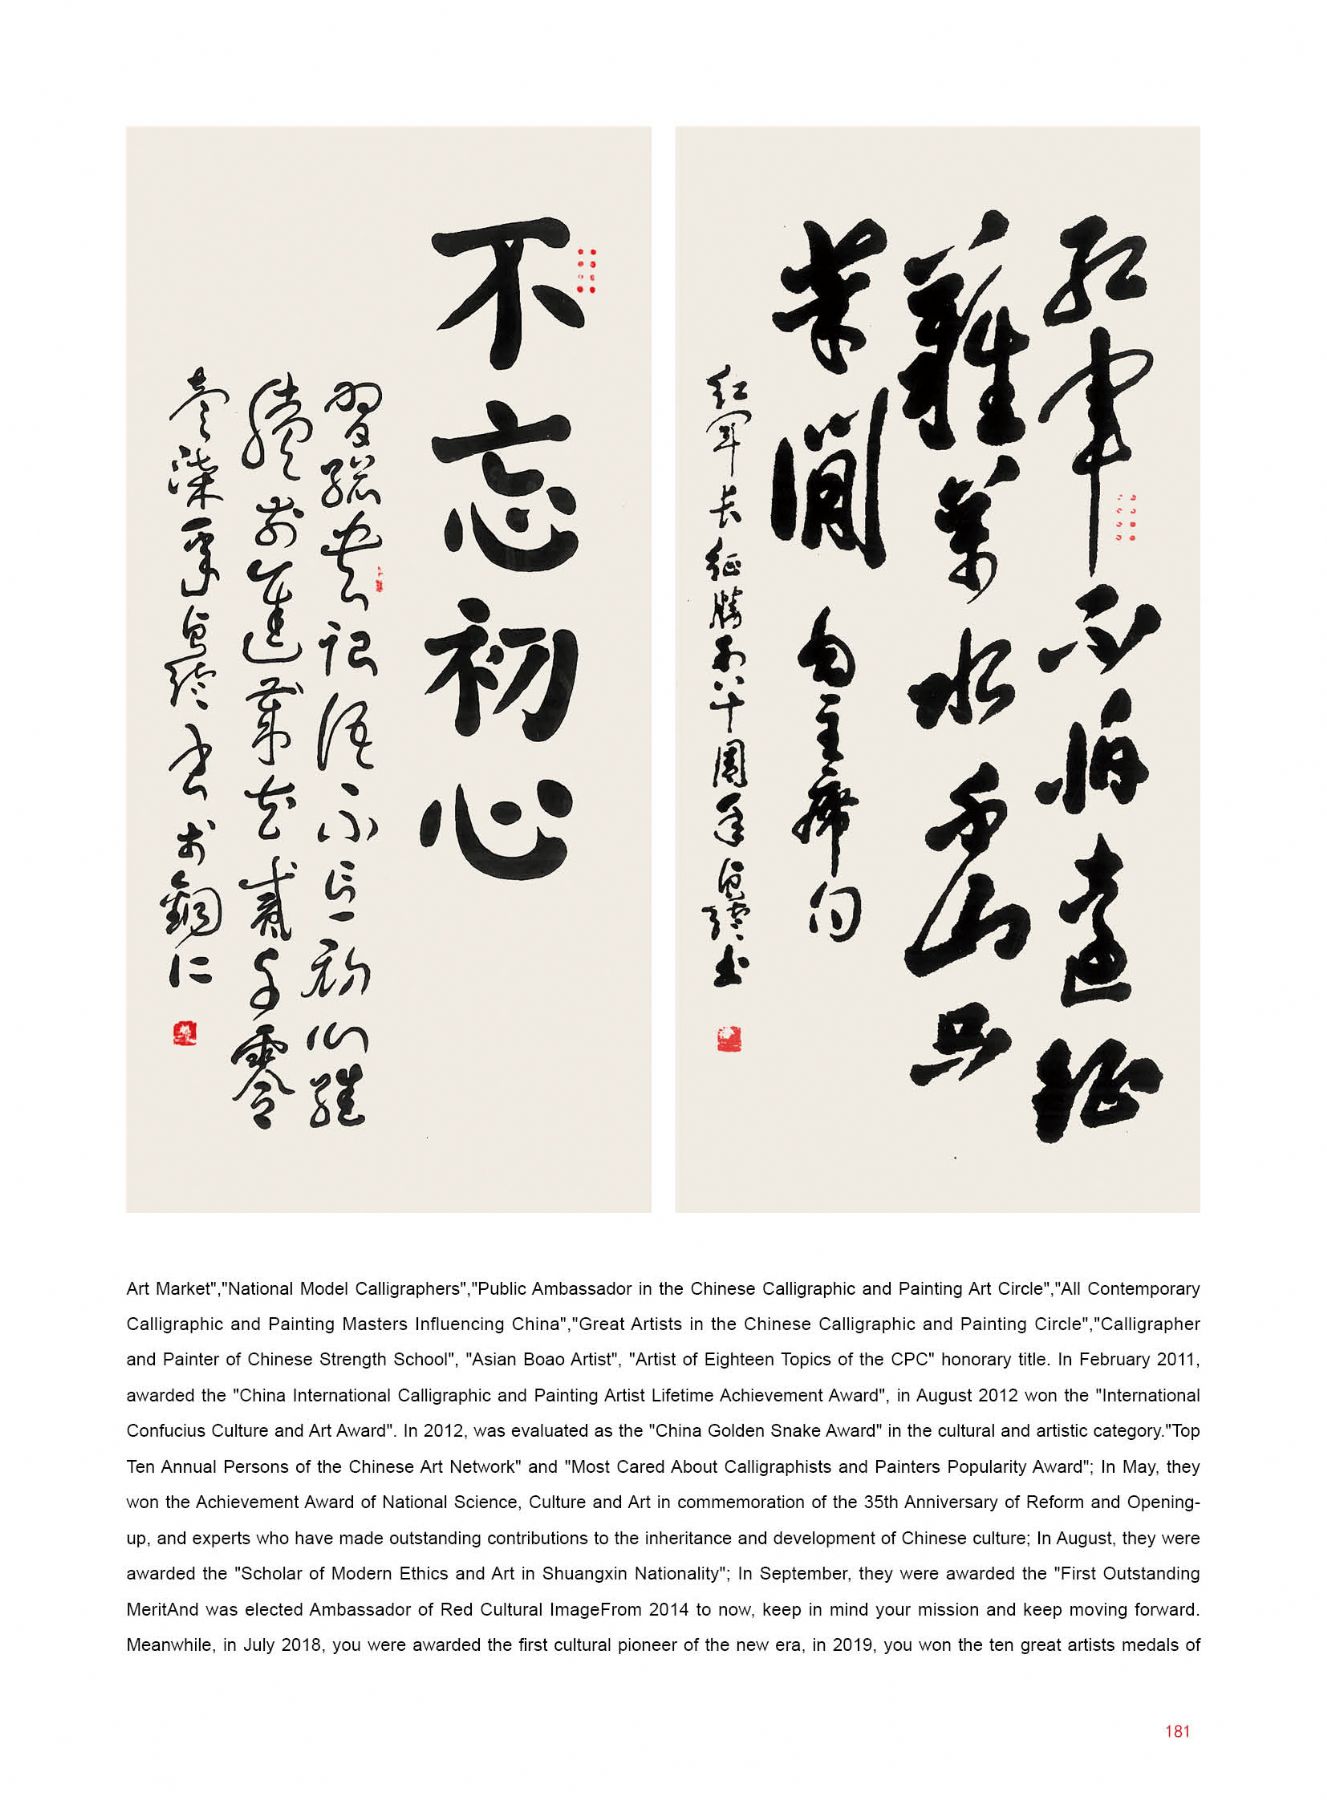 不忘初心
習總書記語不忘初心繼
續前進歲在貳千零
壹柒年书於銅仁
红軍不怕遠征
難萬水千山只
等閒
毛主席句
红軍长征勝利八十周年书
Art Market","National Model Calligraphers","Public Ambassador in the Chinese Calligraphic and Painting Art Circle","All Contemporary
Calligraphic and Painting Masters Influencing China","Great Artists in the Chinese Calligraphic and Painting Circle","Calligrapher
and Painter of Chinese Strength School", "Asian Boao Artist", "Artist of Eighteen Topics of the CPC" honorary title. In February 2011,
awarded the "China International Calligraphic and Painting Artist Lifetime Achievement Award", in August 2012 won the "International
Confucius Culture and Art Award". In 2012, was evaluated as the "China Golden Snake Award" in the cultural and artistic category."Top
Ten Annual Persons of the Chinese Art Network" and "Most Cared About Calligraphists and Painters Popularity Award"; In May, they
won the Achievement Award of National Science, Culture and Art in commemoration of the 35th Anniversary of Reform and Opening-
up, and experts who have made outstanding contributions to the inheritance and development of Chinese culture; In August, they were
awarded the "Scholar of Modern Ethics and Art in Shuangxin Nationality"; In September, they were awarded the "First Outstanding
MeritAnd was elected Ambassador of Red Cultural ImageFrom 2014 to now, keep in mind your mission and keep moving forward.
Meanwhile, in July 2018, you were awarded the first cultural pioneer of the new era, in 2019, you won the ten great artists medals of
181